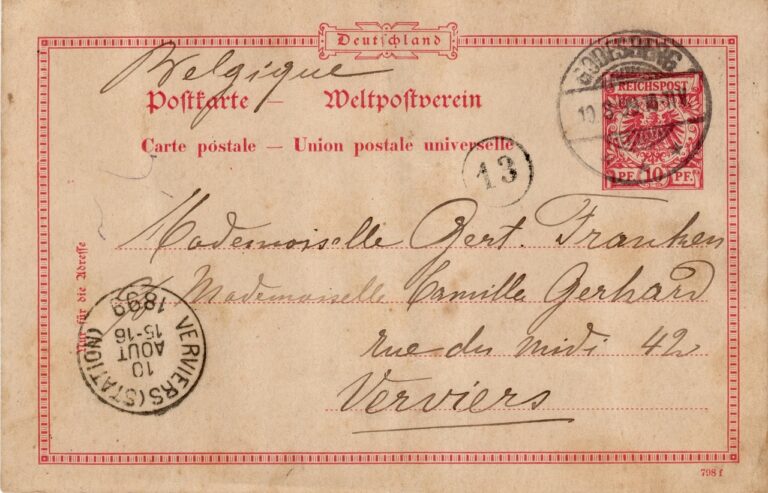 Deutschland
Belgique
Postkarte — Weltpostverein
Carte postale — Union postale universelle
GODESBERG
REICHSPOST
10 PF. 10 PF.
13
Nur für die Adresse
Mademoiselle Gert. Franken
Mademoiselle Camilla Gerhard
rue du midi 42
Verviers
VERVIERS (STATION)
10
AOUT
15-16
1899
798 f